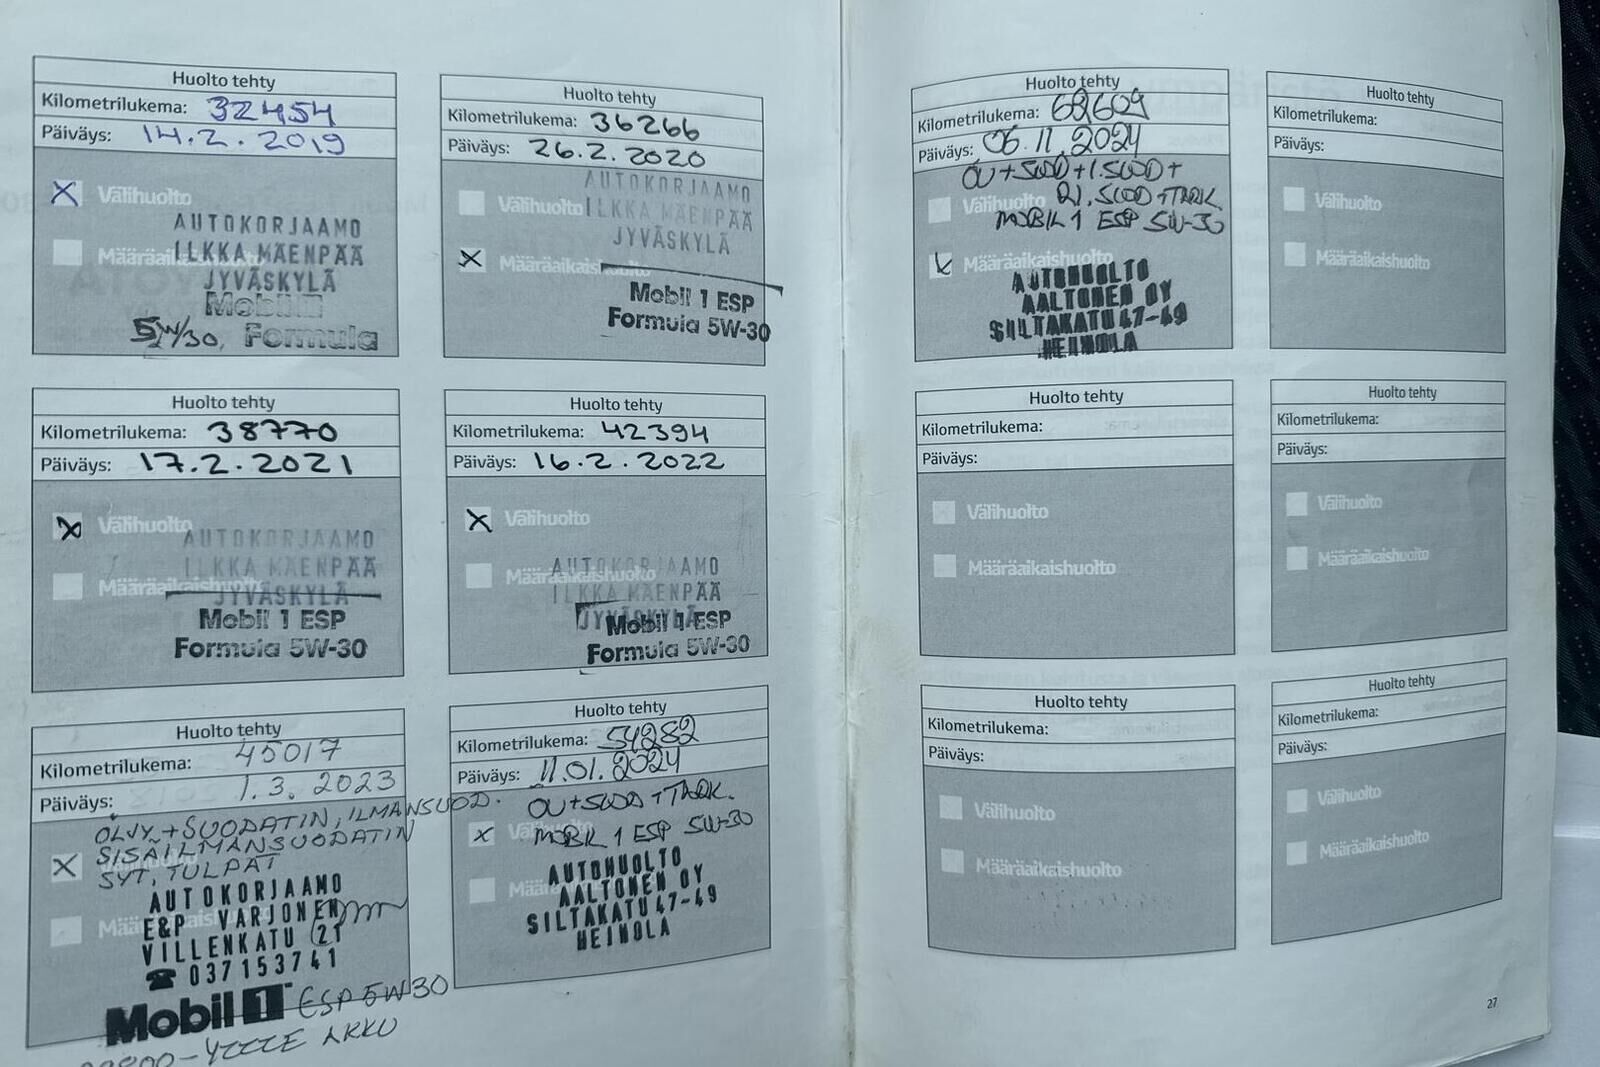 Huolto tehty
Kilometrilukema: 32454
Päiväys: 14.2.2019
X Välihuolto
AUTOKORJAAMO
ILKKA MÄENPÄÄ
JYVÄSKYLÄ
Mobil 1
5W/30, Formula
Huolto tehty
Kilometrilukema: 36266
Päiväys: 26.2.2020
AUTOKORJAAMO
Välihuolto ILKKA MÄENPÄÄ
JYVÄSKYLÄ
X Määräaikaishuolto
Mobil 1 ESP
Formula 5W-30
Huolto tehty
Kilometrilukema: 38770
Päiväys: 17.2.2021
X Välihuolto
AUTOKORJAAMO
ILKKA MÄENPÄÄ
Määräaikaishuolto
JYVÄSKYLÄ
Mobil 1 ESP
Formula 5W-30
Huolto tehty
Kilometrilukema: 42394
Päiväys: 16.2.2022
X Välihuolto
AUTOKORJAAMO
Määräaikaishuolto
ILKKA MÄENPÄÄ
JYVÄSKYLÄ
Mobil 1 ESP
Formula 5W-30
Huolto tehty
Kilometrilukema: 45017
Päiväys: 1.3.2023
ÖLJY + SUODATIN, ILMANSUOD.
SISÄILMANSUODATIN
SYT, TULPAT
AUTOKORJAAMO
E&P VARJONEN
VILLENKATU 21
☎ 037153741
Mobil 1 ESP 5W30
AKKU
Huolto tehty
Kilometrilukema: 54282
Päiväys: 11.01.2024
ÖV+SUOD+TARK.
X MOBIL 1 ESP 5W-30
AUTOHUOLTO
AALTONEN OY
SILTAKATU 47-49
HEINOLA
Huolto tehty
Kilometrilukema:
Päiväys: 06.11.2024
ÖV+SUOD+I.SUOD+
Välihuolto
MOBIL 1 ESP 5W-30
Määräaikaishuolto
AUTOHUOLTO
AALTONEN OY
SILTAKATU 47-49
HEINOLA
Huolto tehty
Kilometrilukema:
Päiväys:
Välihuolto
Määräaikaishuolto
Huolto tehty
Kilometrilukema:
Päiväys:
Välihuolto
Määräaikaishuolto
Huolto tehty
Kilometrilukema:
Päiväys:
Välihuolto
Määräaikaishuolto
Huolto tehty
Kilometrilukema:
Päiväys:
Välihuolto
Määräaikaishuolto
Huolto tehty
Kilometrilukema:
Päiväys:
Välihuolto
Määräaikaishuolto
27